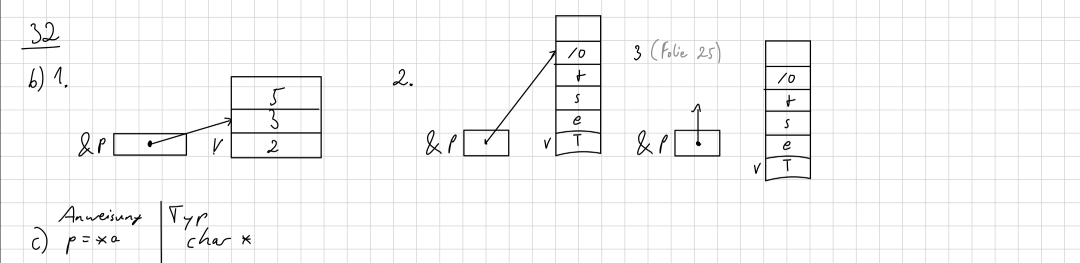 32
b) 1.
5
3
2
&P
V
2.
/0
t
s
e
T
&P
V
3 (Folie 25)
/0
t
s
e
T
&P
V
Anweisung | Typ
c) p = *a | char *